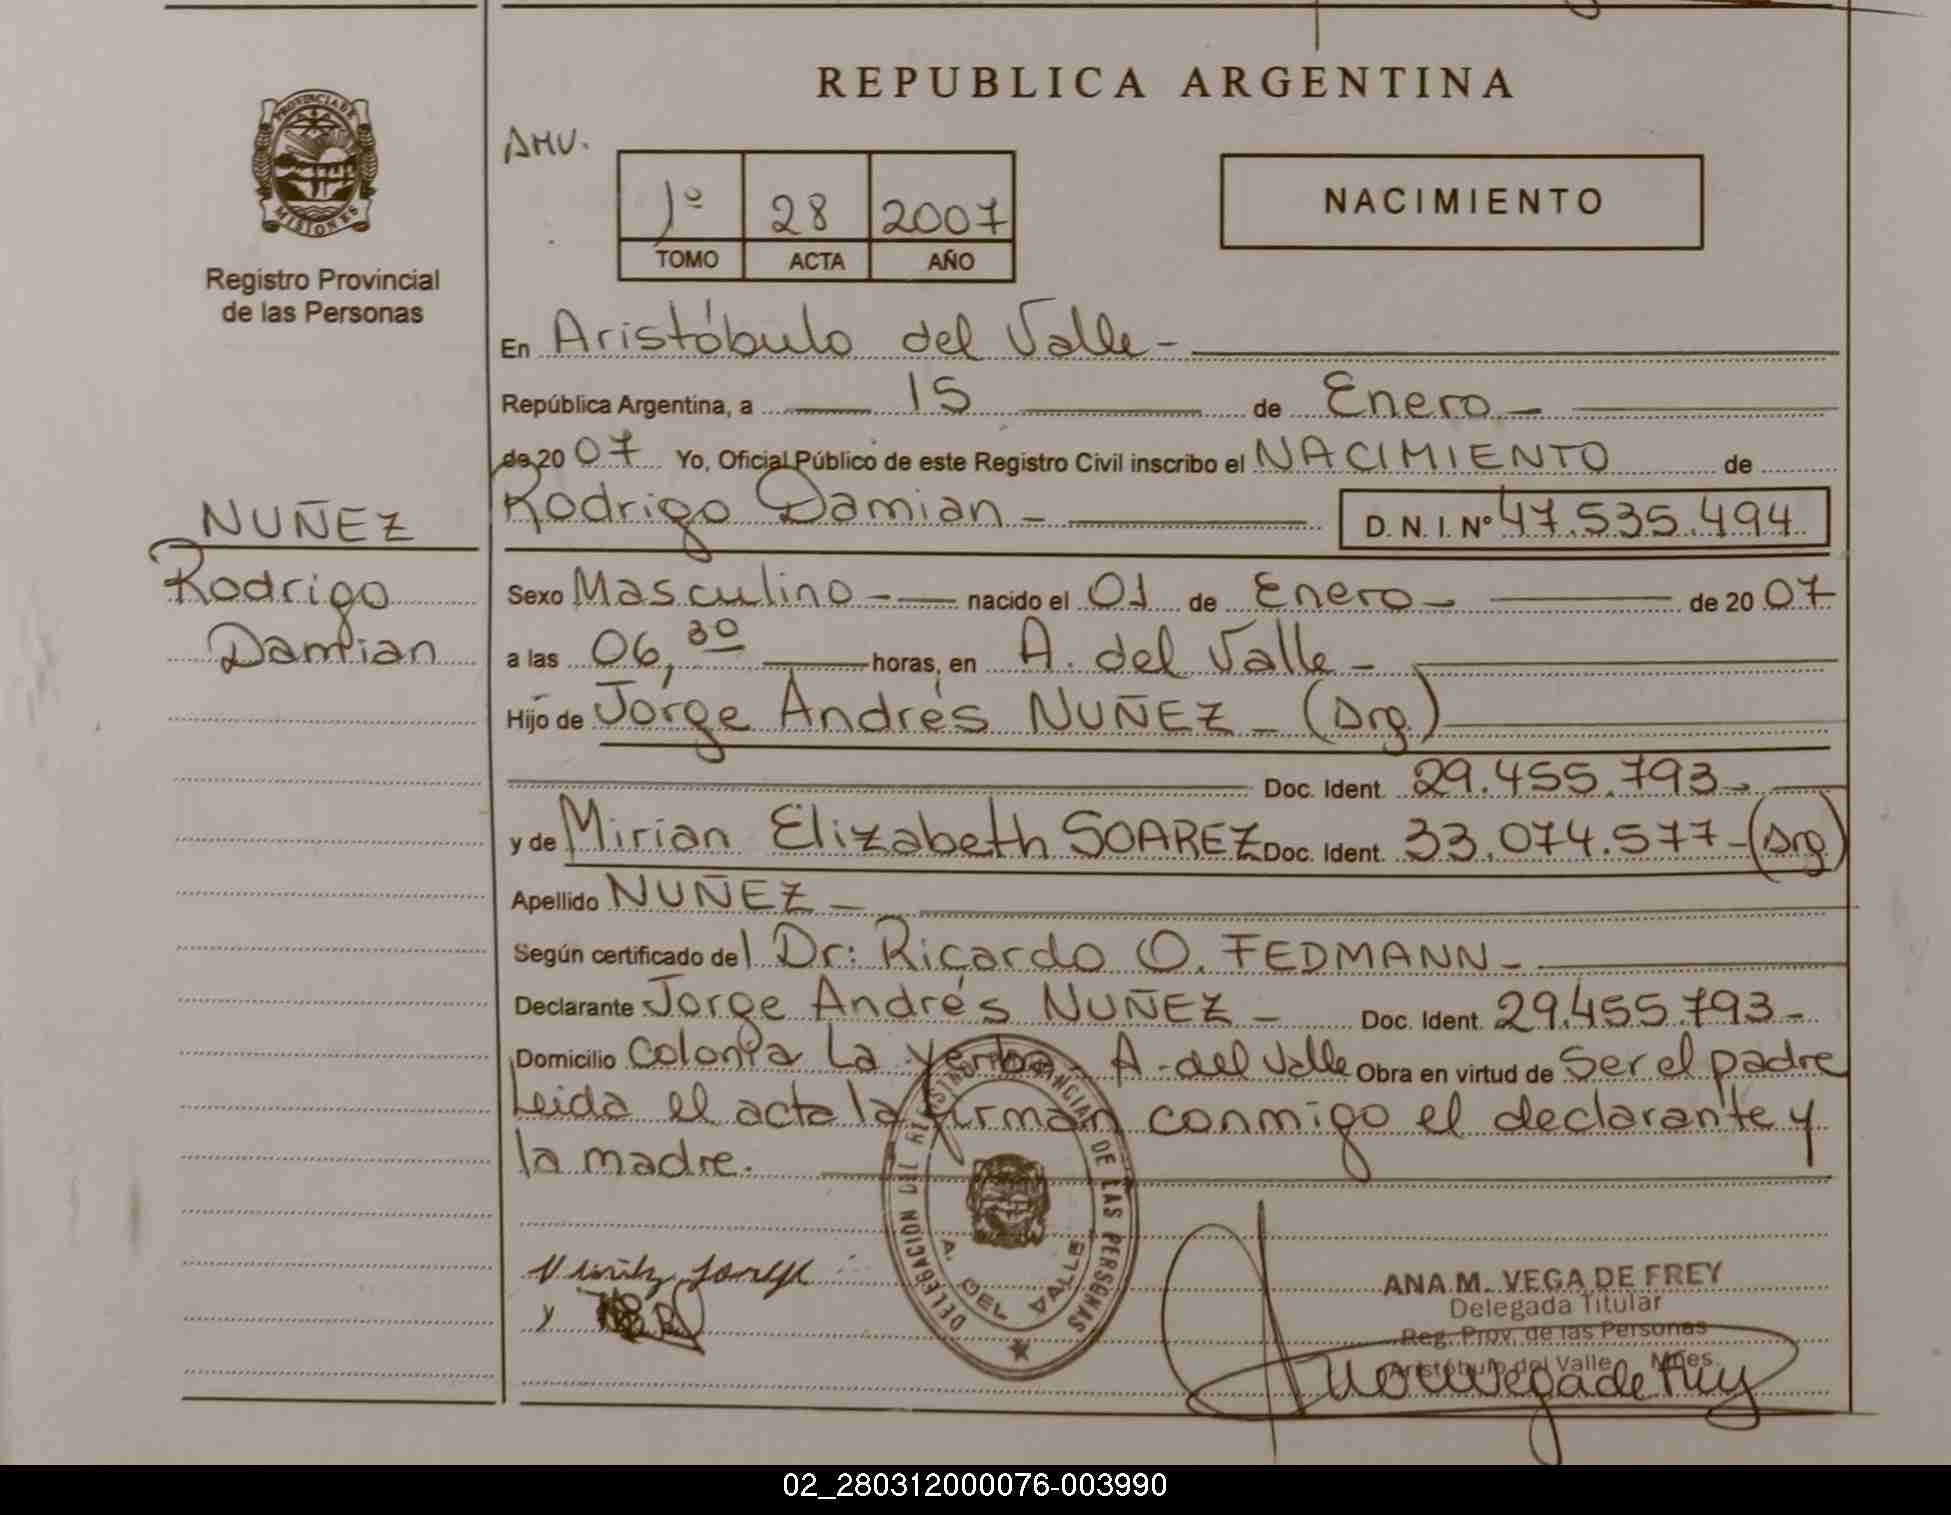 REPUBLICA ARGENTINA
PROVINCIA DE
MISIONES
Registro Provincial
de las Personas
AMV.
1º 28 2007
TOMO ACTA AÑO
NACIMIENTO
En Aristóbulo del Valle -
República Argentina, a 15 de Enero -
de 20 07 Yo, Oficial Público de este Registro Civil inscribo el NACIMIENTO de
Rodrigo Damian - D. N. I. Nº 47.535.494
NUÑEZ
Rodrigo
Damian
Sexo Masculino - nacido el 01 de Enero - de 20 07
a las 06,30 horas, en A. del Valle -
Hijo de Jorge Andrés NUÑEZ - (Arg.)
Doc. Ident. 29.455.793 -
y de Mirian Elizabeth SOAREZ Doc. Ident. 33.074.577 - (Arg.)
Apellido NUÑEZ -
Según certificado del Dr: Ricardo O. FEDMANN -
Declarante Jorge Andrés NUÑEZ - Doc. Ident. 29.455.793 -
Domicilio Colonia La Yerba - A. del Valle Obra en virtud de Ser el padre
Leida el acta la firman conmigo el declarante y
la madre.
DELEGACION DEL REGISTRO PROVINCIAL DE LAS PERSONAS
A. DEL VALLE
ANA M. VEGA DE FREY
Delegada Titular
Reg. Prov. de las Personas
Aristóbulo del Valle Mnes.
02_280312000076-003990